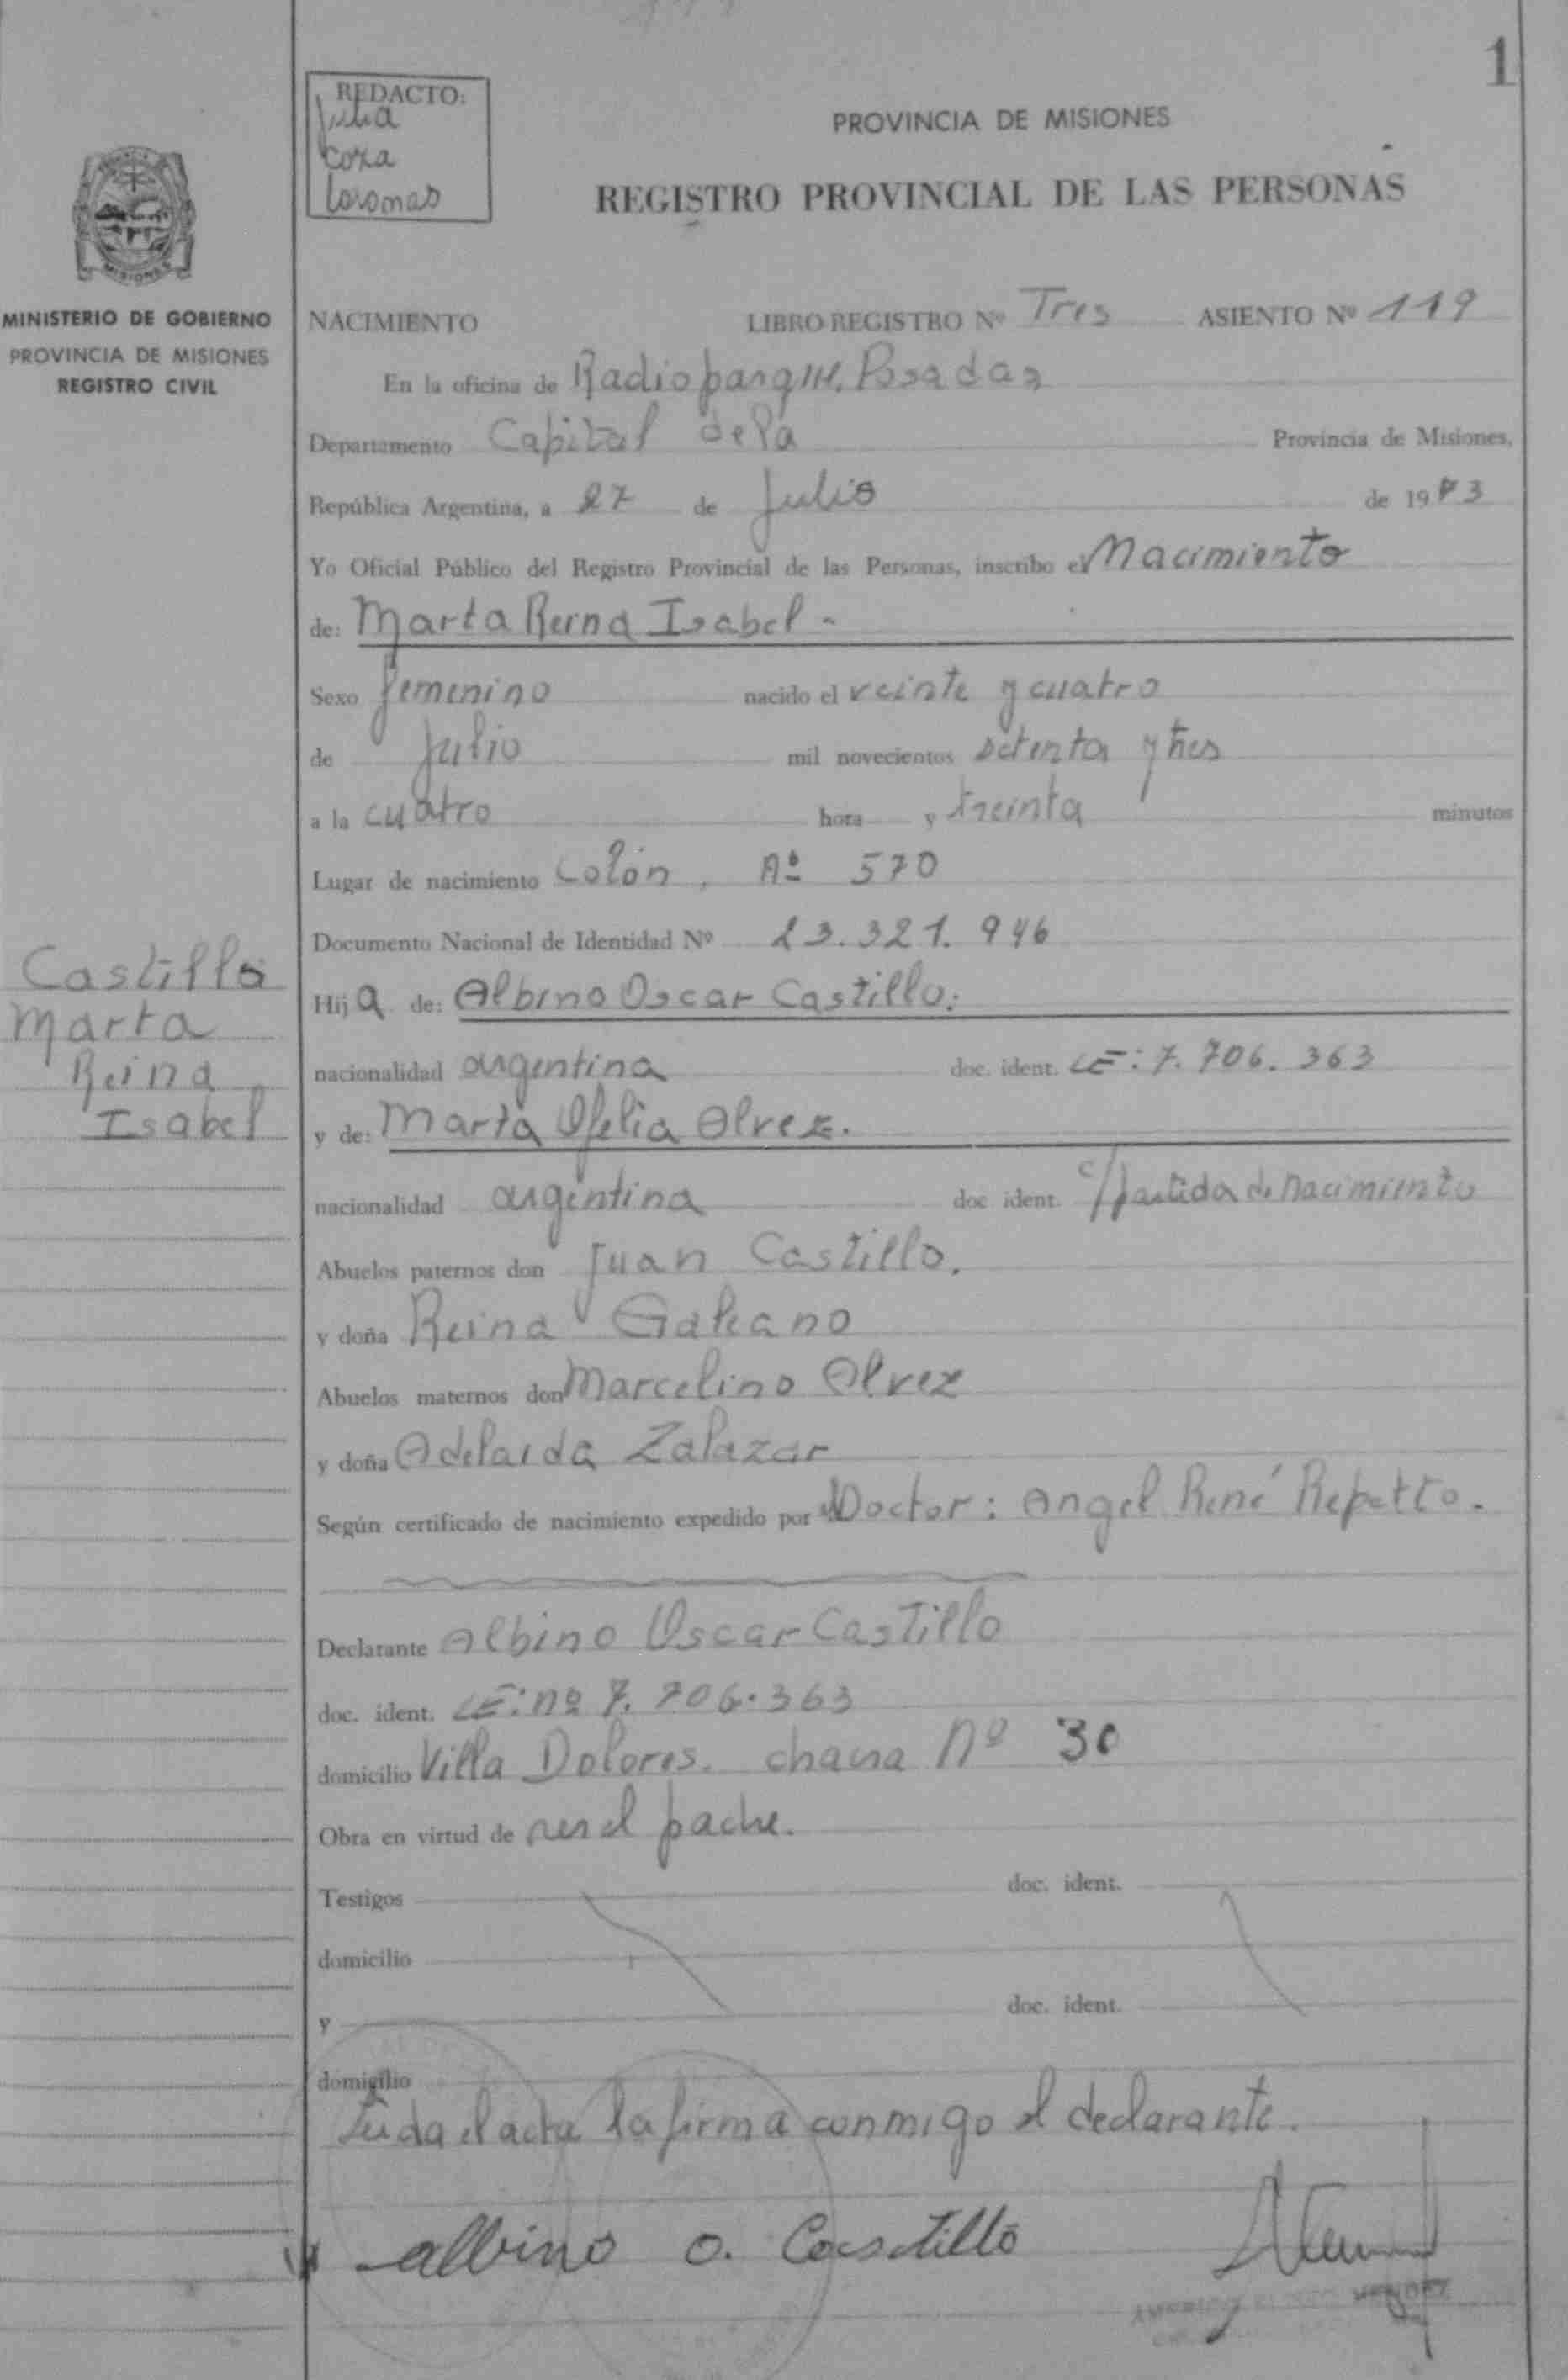 1
REDACTO:
Julia
PROVINCIA DE MISIONES
REGISTRO PROVINCIAL DE LAS PERSONAS
MISIONES
MINISTERIO DE GOBIERNO
PROVINCIA DE MISIONES
REGISTRO CIVIL
NACIMIENTO LIBRO REGISTRO Nº Tres ASIENTO Nº 119
En la oficina de Posadas
Departamento Capital de la Provincia de Misiones,
República Argentina, a 27 de Julio de 1973
Yo Oficial Público del Registro Provincial de las Personas, inscribo el Nacimiento
de: Marta Reina Isabel -
Sexo femenino nacido el veinte y cuatro
de Julio mil novecientos setenta y tres
a la cuatro hora y treinta minutos
Lugar de nacimiento Colón, Nº 570
Documento Nacional de Identidad Nº 23.321.946
Castillo
Marta
Reina
Isabel
Hija de: Albino Oscar Castillo.
nacionalidad argentina doc. ident. LE: 7.706.363
y de: Marta Ofelia Alvez.
nacionalidad argentina doc ident. c/partida de nacimiento
Abuelos paternos don Juan Castillo.
y doña Reina Galeano
Abuelos maternos don Marcelino Alvez
y doña Adelaida Zalazar
Según certificado de nacimiento expedido por el Doctor: Angel René Repetto.
Declarante Albino Oscar Castillo
doc. ident. LE: nº 7.706.363
domicilio Villa Dolores. chacra Nº 30
Obra en virtud de ser el padre.
Testigos doc. ident.
domicilio
y doc. ident.
domicilio
Leida el acta la firma conmigo el declarante.
albino o. Castillo